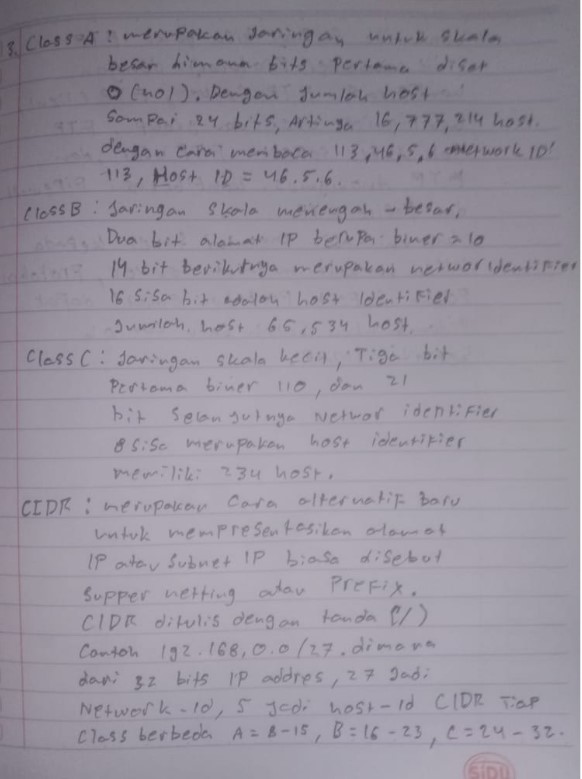 3. Class A : merupakan Jaringan untuk skala
besar himana bits pertama diset
0 (nol). Dengan Jumlah host
Sampai 24 bits, Artinya 16,777,214 host.
dengan cara membaca 113,46,5,6 network ID
113, Host ID = 46.5.6.
Class B : Jaringan Skala menengah - besar,
Dua bit alamat IP berupa biner = 10
14 bit berikutnya merupakan networ identifier
16 sisa bit adalah host Identifier
Jumlah host 65,534 host
Class C : Jaringan skala kecil, Tiga bit
Pertama biner 110, dan 21
bit Selanjutnya Networ identifier
8 sisa merupakan host identifier
memiliki 234 host.
CIDR : merupakan Cara alternatif Baru
untuk mempresentasikan alamat
IP atau Subnet IP biasa disebut
Supper netting atau Prefix.
CIDR ditulis dengan tanda (/)
Contoh 192.168,0.0/27. dimana
dari 32 bits IP addres, 27 Jadi
Network-id, 5 Jadi host-id CIDR Tiap
Class berbeda A = 8-15, B = 16-23, C = 24-32.
SIDU